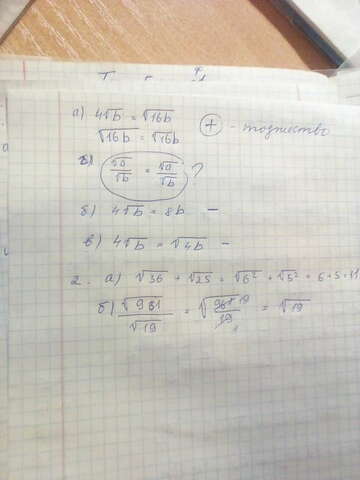 а) 4√b = √16b
√16b = √16b
⊕ - тождество
г) √a/√b = √a/√b ?
б) 4√b = 8b -
в) 4√b = √4b -
2. а) √36 + √25 = √6² + √5² = 6+5=11
б) √961/√19 = √961/19 = √19